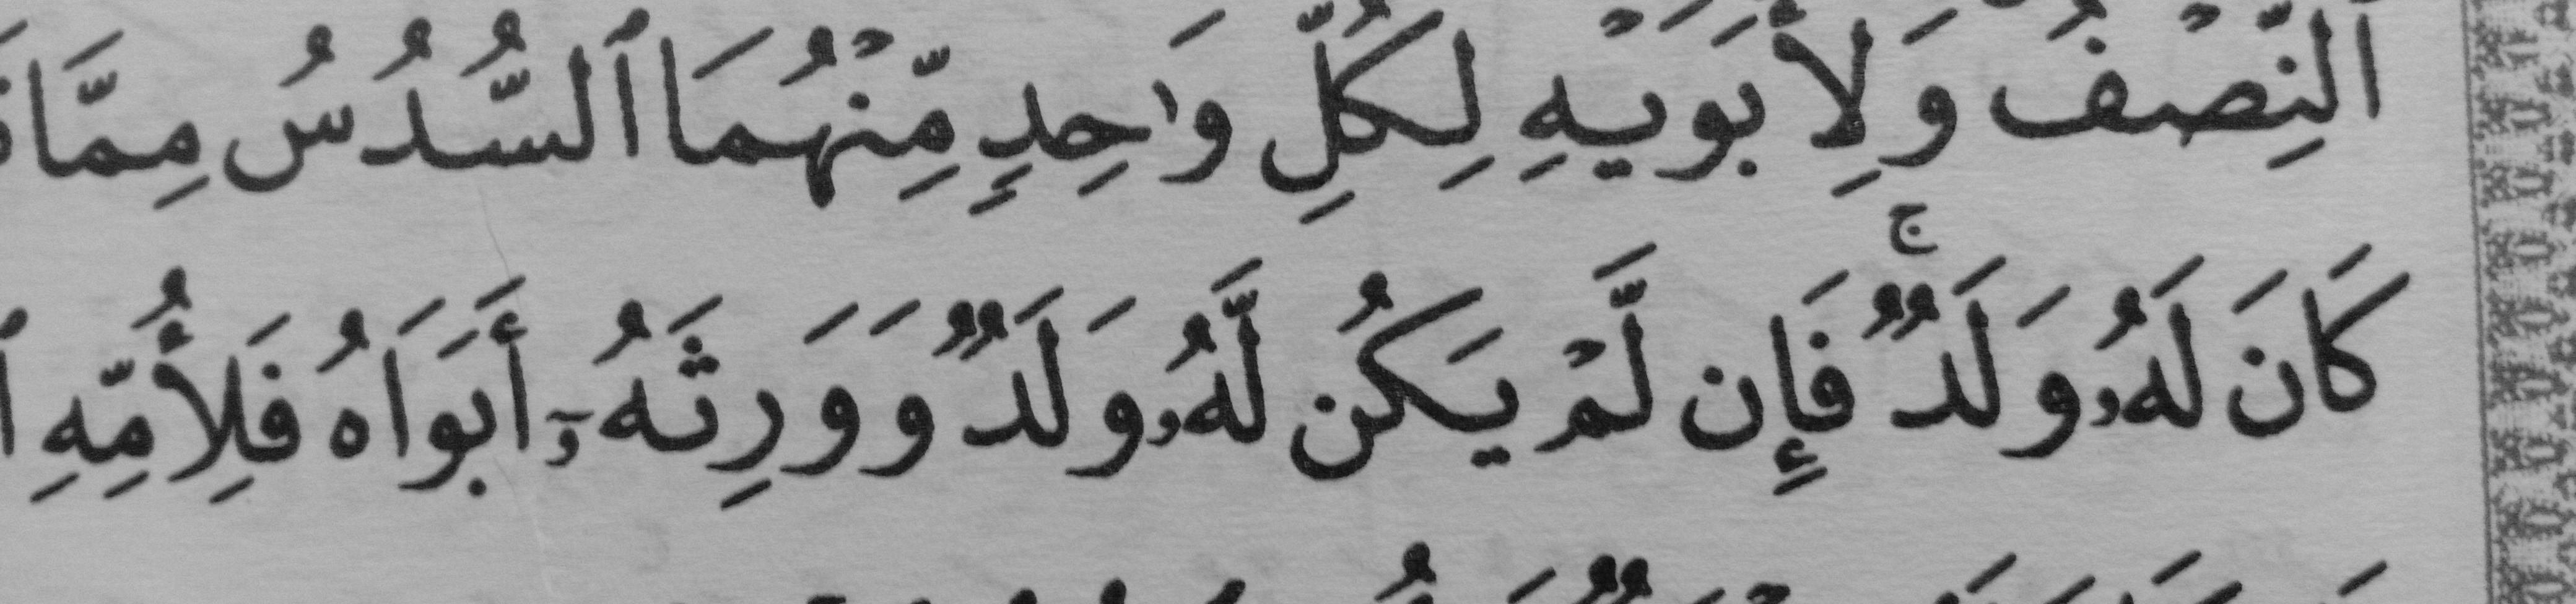 ٱلنِّصْفُ وَلِأَبَوَيْهِ لِكُلِّ وَٰحِدٍ مِّنْهُمَا ٱلسُّدُسُ مِمَّا
كَانَ لَهُۥ وَلَدٌ ۚ فَإِن لَّمْ يَكُن لَّهُۥ وَلَدٌ وَوَرِثَهُۥٓ أَبَوَاهُ فَلِأُمِّهِ